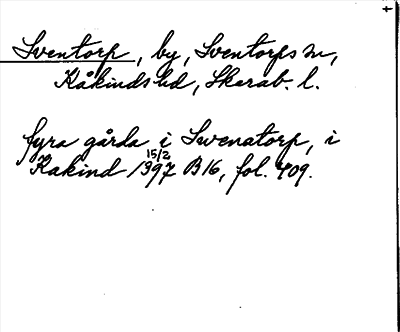 Sventorp, by, Sventorps sn,
Kåkinds hd, Skarab. l.
fyra gårda i Swenatorp, i
Kakind 15/2 1397 B16, fol. 409.